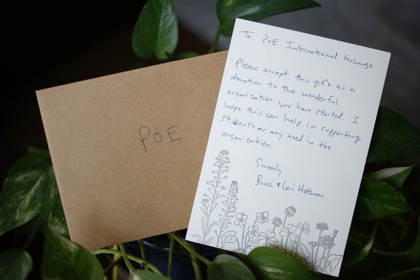 POE
To POE International Exchange
Please accept this gift as a
donation to the wonderful
organization you have started. I
hope this can help in supporting
students or any need in the
organization.
Sincerely
Bruce & Lori